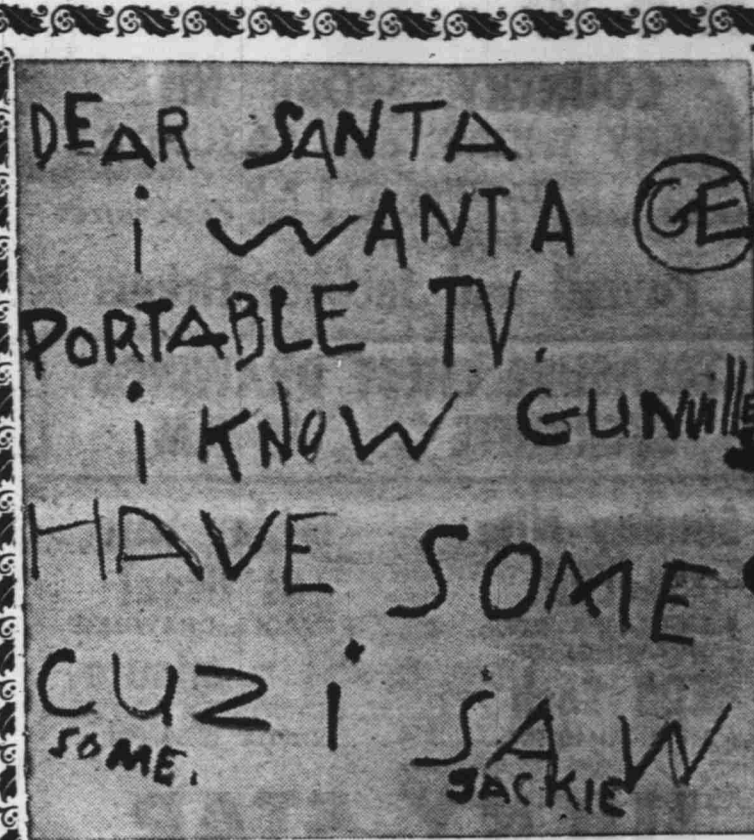 DEAR SANTA
i WANT A GE
PORTABLE TV.
i KNOW GUNVille
HAVE SOME
CUZ i SAW
SOME.
JACKIE